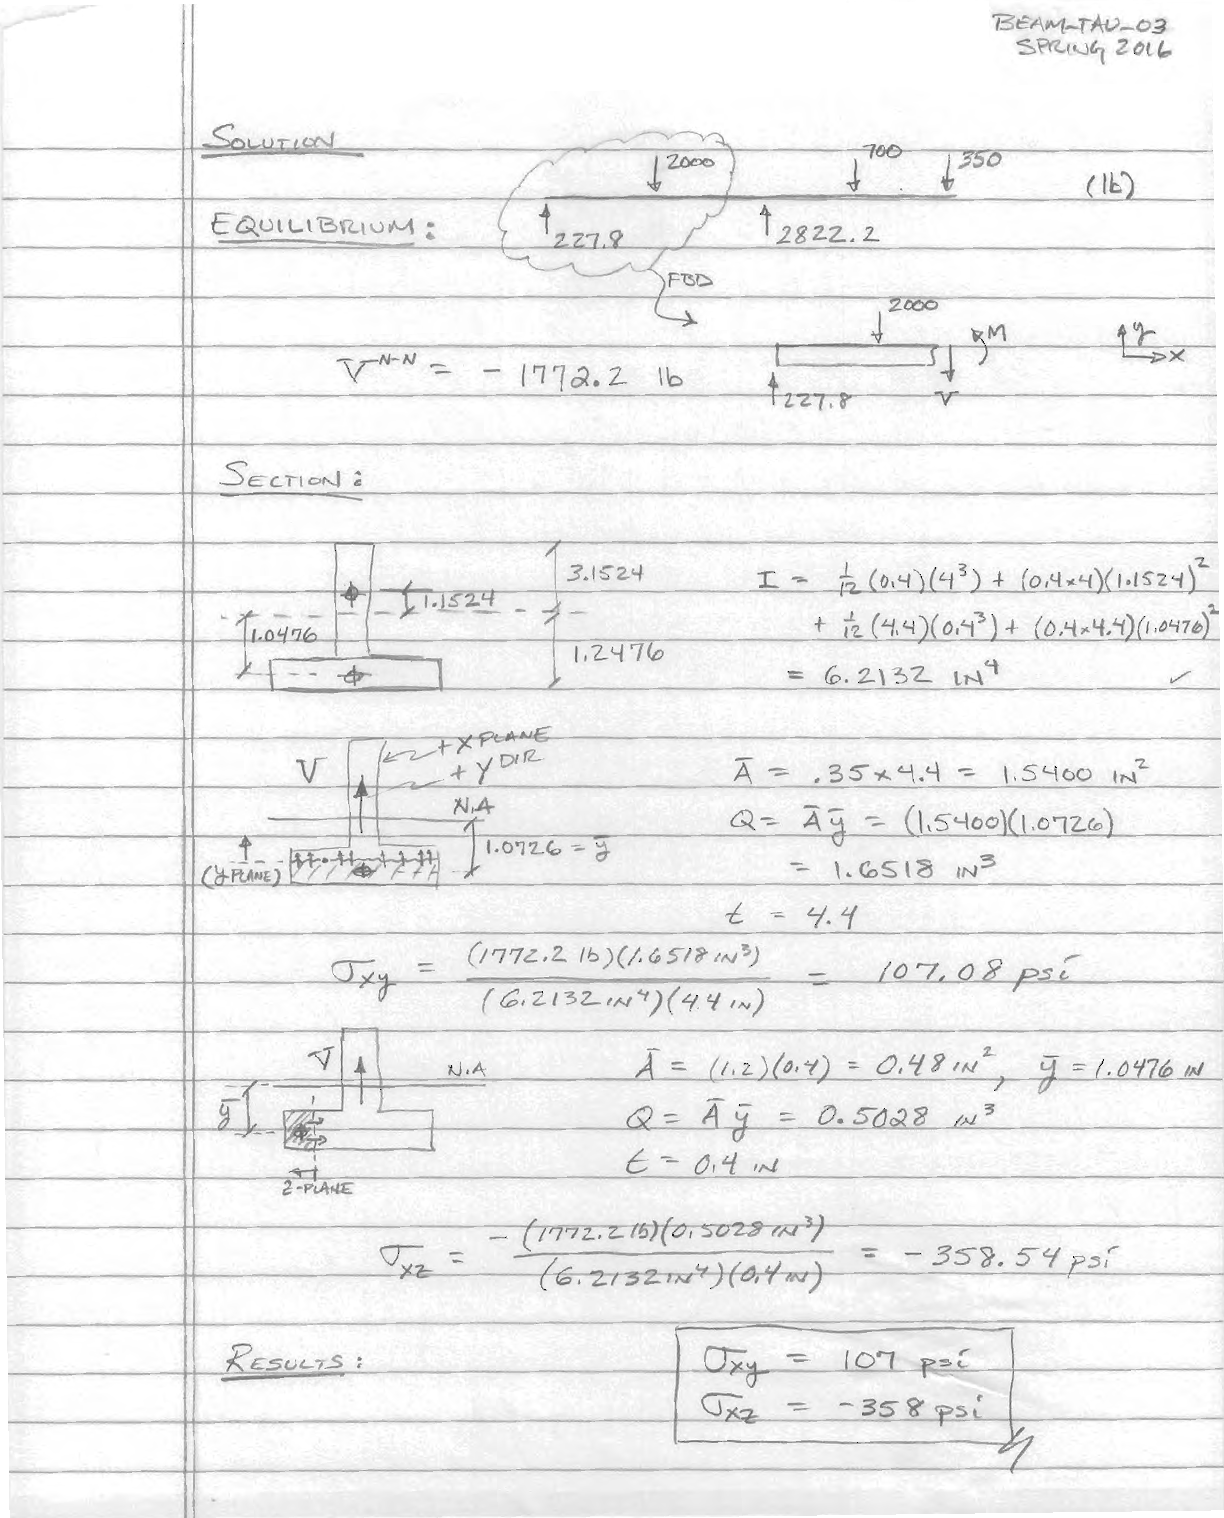 BEAM-TAU-03
SPRING 2016
SOLUTION
2000
700
350
(lb)
EQUILIBRIUM:
227.8
2822.2
FBD
2000
M
y
x
V^N-N = - 1772.2 lb
227.8
V
SECTION:
3.1524
1.1524
1.0476
1.2476
I = 1/12 (0.4)(4³) + (0.4×4)(1.1524)²
+ 1/12 (4.4)(0.4³) + (0.4×4.4)(1.0476)²
= 6.2132 IN⁴ ✓
+X PLANE
+Y DIR
V
N.A
1.0726 = ȳ
(y PLANE)
Ā = .35 × 4.4 = 1.5400 IN²
Q = Ā ȳ = (1.5400)(1.0726)
= 1.6518 IN³
t = 4.4
σxy = (1772.2 lb)(1.6518 IN³) / (6.2132 IN⁴)(4.4 IN) = 107.08 psi
V
N.A
ȳ
Z-PLANE
Ā = (1.2)(0.4) = 0.48 IN², ȳ = 1.0476 IN
Q = Ā ȳ = 0.5028 IN³
t = 0.4 IN
σxz = -(1772.2 lb)(0.5028 IN³) / (6.2132 IN⁴)(0.4 IN) = -358.54 psi
RESULTS:
σxy = 107 psi
σxz = -358 psi